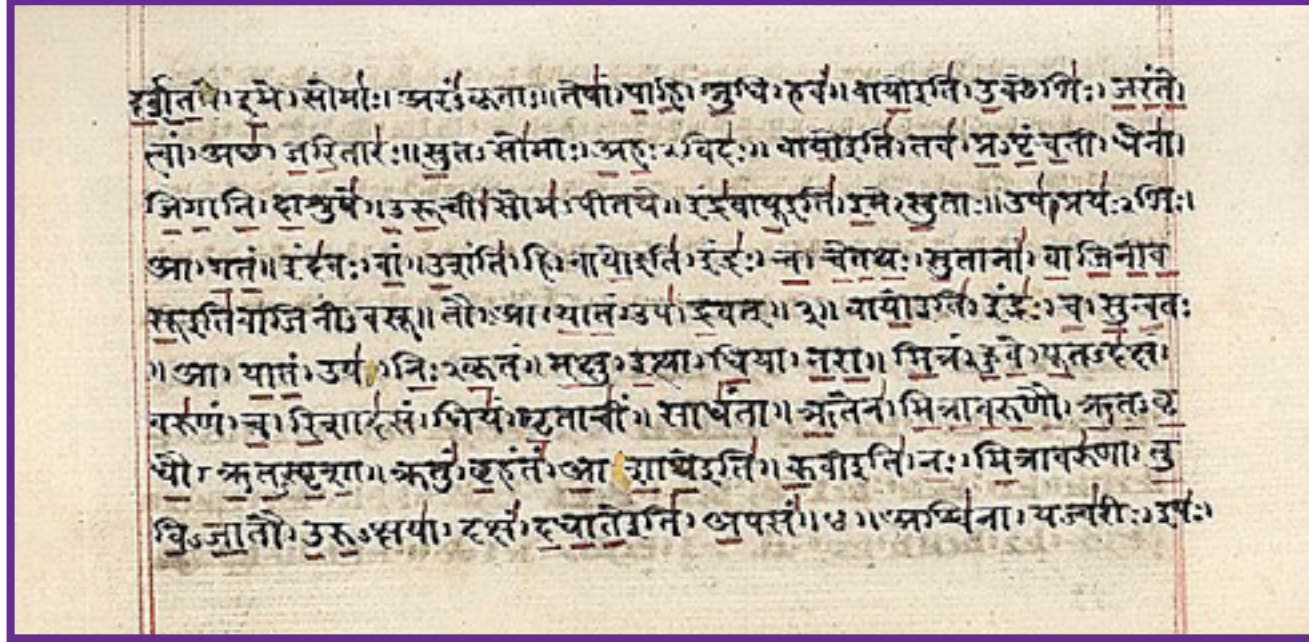 दर्शत । इमे । सोमाः । अरंऽकृताः ॥ तेषां । पाहि । श्रुधि । हवं ॥ वायो इति । उक्थेभिः । जरंते
त्वां । अच्छ । जरितारः ॥ सुतऽसोमाः । अहःऽविदः ॥ वायो इति । तव । प्रऽपृंचती । धेना ।
जिगाति । दाशुषे ॥ उरूची । सोमऽपीतये ॥ इंद्रवायू इति । इमे । सुताः ॥ उप । प्रयःऽभिः ।
आ । गतं ॥ इंदवः । वां । उशंति । हि ॥ वायो इति । इंद्रः । च । चेतथः । सुतानां । वाजिनीव
सू इति वाजिनीऽवसू ॥ तौ । आ । यातं । उप । द्रवत् ॥ ३ ॥ वायो इति । इंद्रः । च । सुन्वतः
॥ आ । यातं । उप । निःऽकृतं ॥ मक्षु । इत्था । धिया । नरा ॥ मित्रं । हुवे । पूतऽदक्षं
वरुणं । च । रिशादसं । धियं । घृताचीं ॥ साधंता ॥ ऋतेन । मित्रावरुणौ । ऋतऽवृ
धौ । ऋतऽस्पृशा ॥ क्रतुं । बृहंतं । आशाथे इति ॥ कवी इति । नः । मित्रावरुणा । तु
विऽजातौ । उरुऽक्षया । दक्षं । दधाते इति । अपसं ॥ ४ ॥ अश्विना । यज्वरीः । इषः ।